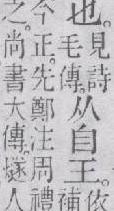 也。
見詩
毛傳。
从自王。
依
補
今正。先鄭注周禮
之。尚書大傳。燧人